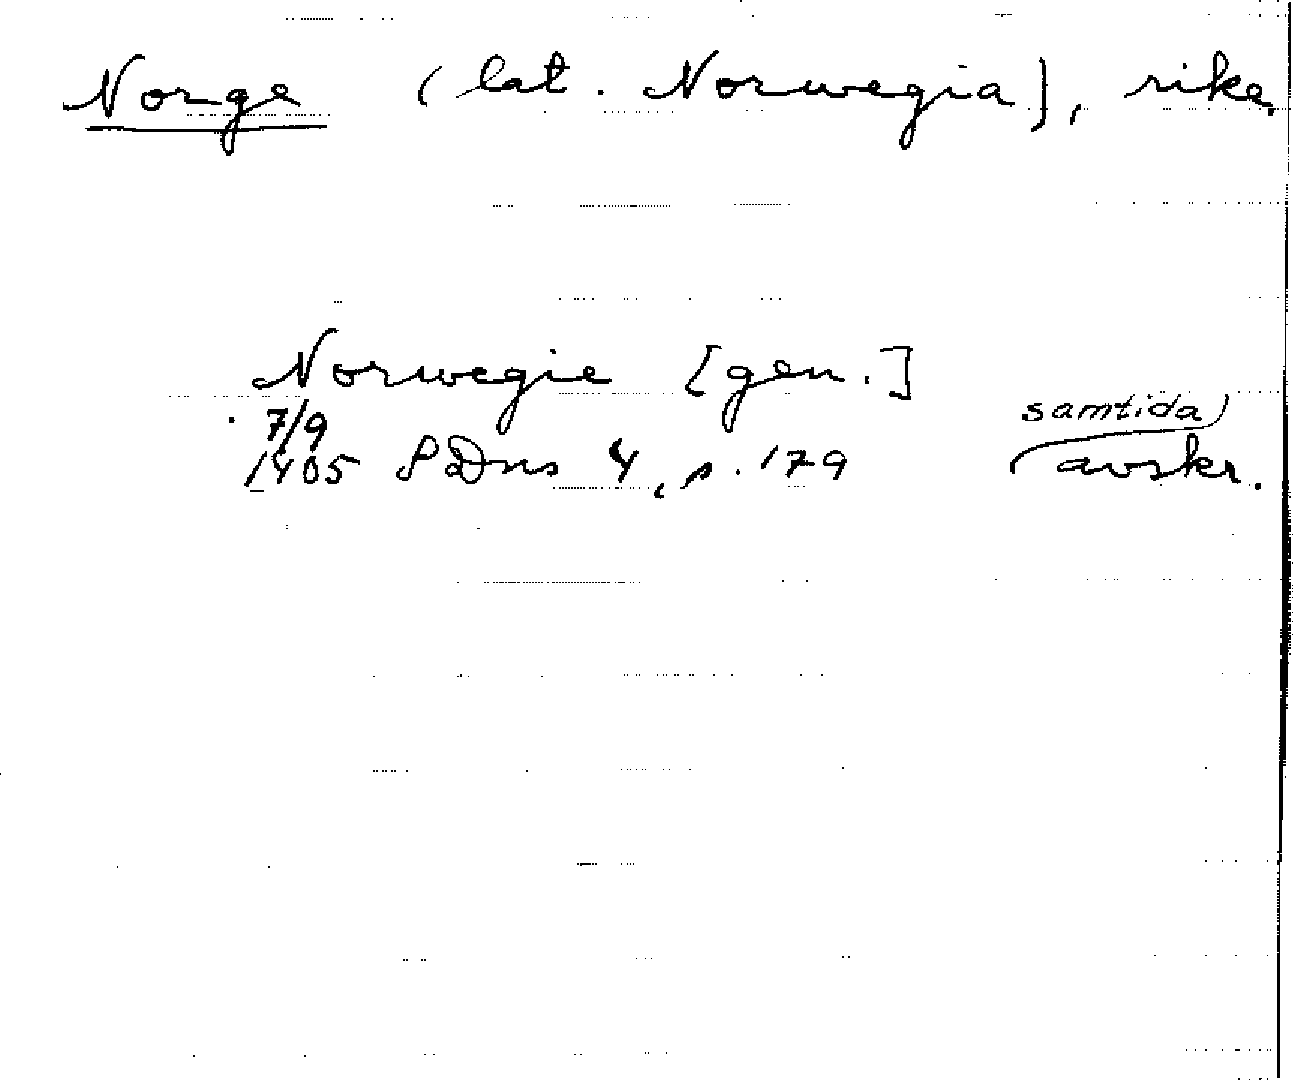 Norge (lat. Norwegia), rike.
Norwegie [gen.]
7/9 samtida)
1405 SDns 4, s. 179 avskr.